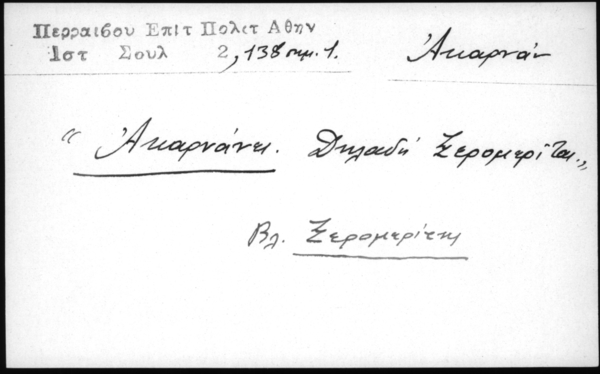 Περραιβου Επιτ Πολιτ Αθην
Ιστ Σουλ 2, 138 σημ. 1. Ἀκαρνάν
“Ἀκαρνάνες. Δηλαδή Ξερομερῖται„
Βλ. Ξερομερίτης